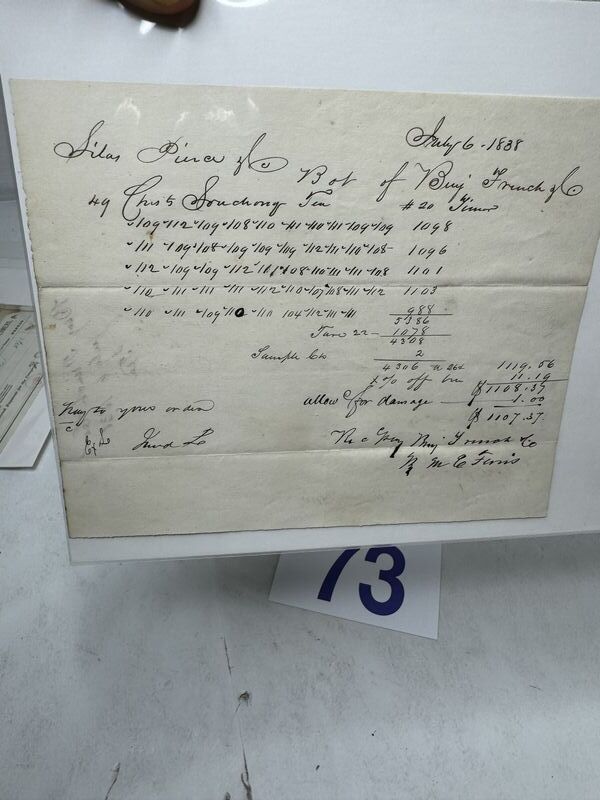 July 6 - 1838
Silas Pierce & Co
Bot of Benj French & Co
49 Chests Souchong Tea #20 Timor
109 112 109 108 110 111 110 111 109 109 1098
111 109 108 109 109 109 112 111 110 108 1096
112 109 109 112 111 108 110 111 111 108 1101
110 111 111 111 112 110 107 108 111 112 1103
110 111 109 110 110 104 112 111 111 988
5386
Tare 22 - 1078
4308
Sample Bxs 2
4306 a 26¢ 1119.56
1% off 11.19
$1108.37
allow for damage 1.00
$1107.37
Pay to your order
Rec Pay Benj French & Co
M E Ferris
73